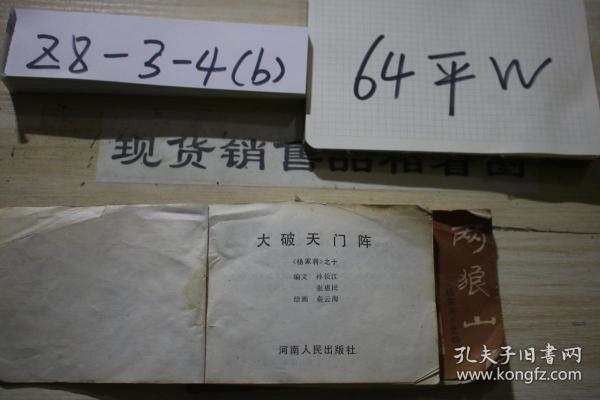 Z8-3-4(b)
64平W
现货销售品相看图
大破天门阵
《杨家将》之十
编文 孙长江
张惠民
绘画 秦云海
河南人民出版社
两狼山
孔夫子旧书网
www.kongfz.com